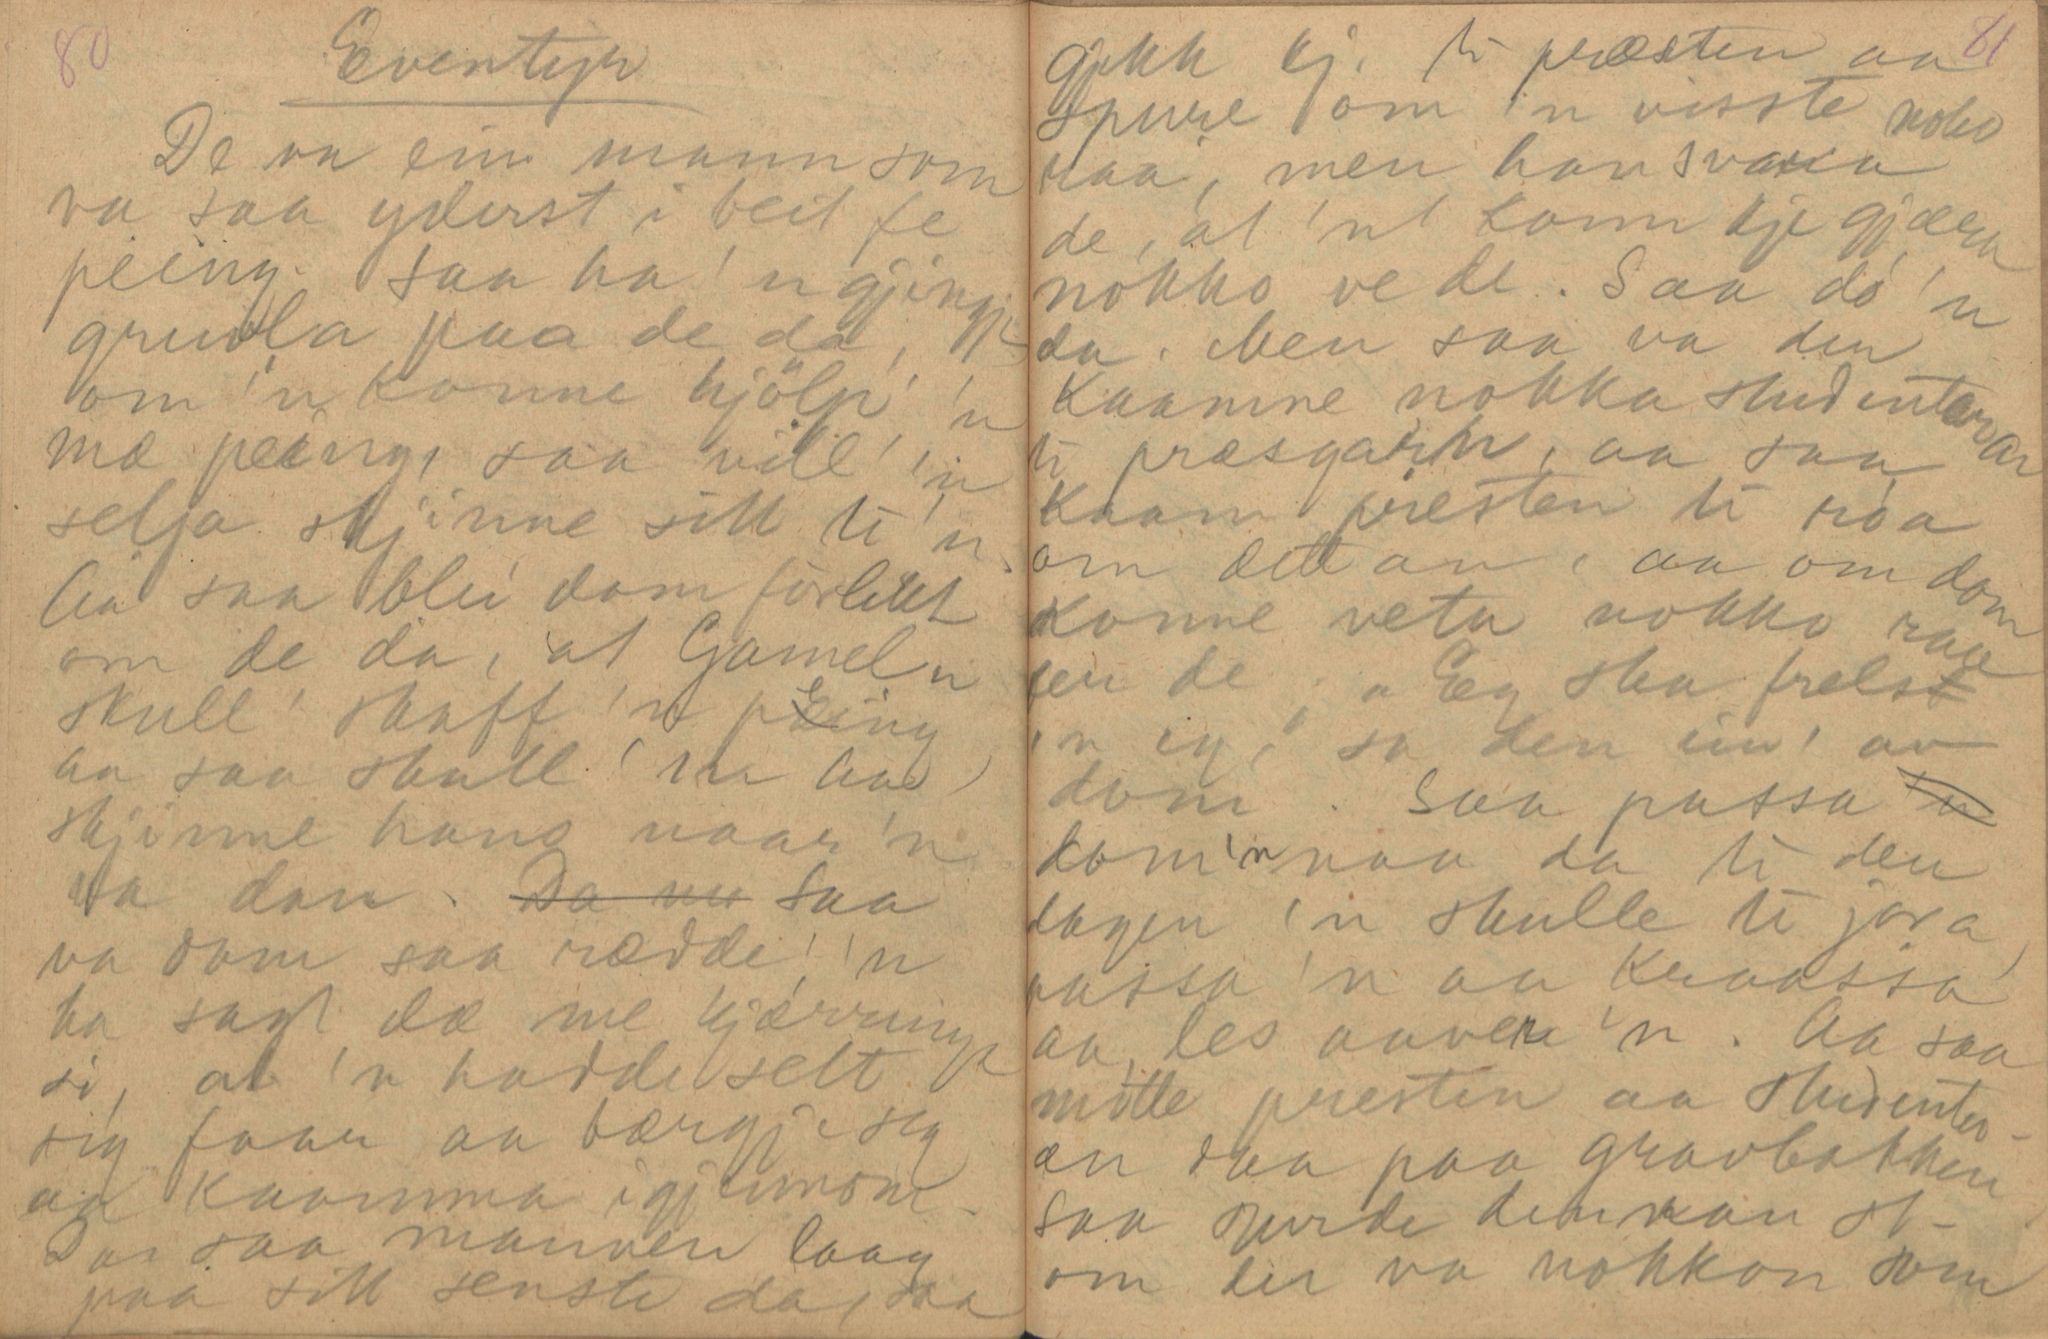 80
Eventyr
De va ein mann som
va saa yderst i beit fe
peing. Saa ha 'n gjingje
gruvla paa de da,
om 'n konne hjölp' 'n
mæ peing, saa vill' 'n
selja skjinne sitt ti 'n.
Aa saa blei dom förlikt
om de da, at Gamel'n
skull' skaff 'n peing
aa saa skull' 'n haa
skjinne hans naar 'n
va dau. Da va Saa
va dom saa rædde, 'n
ha sagt dæ me kjærringje
si, at 'n hadde selt
sig faar aa bærgje seg
aa kaamma igjennom.
Da saa mannen laag
paa sitt senste da, saa
81
gjikk kj. ti præsten aa
spure om 'n visste noko
raa, men han svara
de, at 'n konn kje gjæra
nokko ve de. Saa dó 'n
da. Men saa va den
kaamne nokka studentarar
ti præsgarn, aa saa
kaam presten ti róa
om dettan, aa om dom
konne veta nokko raae
fer de, „Eg ska frelse
'n eg," sa den ein' av
dom. Saa passa 'n
kom 'n naa da ti den
dagen 'n skulle ti jora,
passa 'n aa kraassa
aa les aavera 'n. Aa saa
mötte presten aa studenten-
æn daa paa gravbakken
Saa spurde den st-
om der va nokkon som